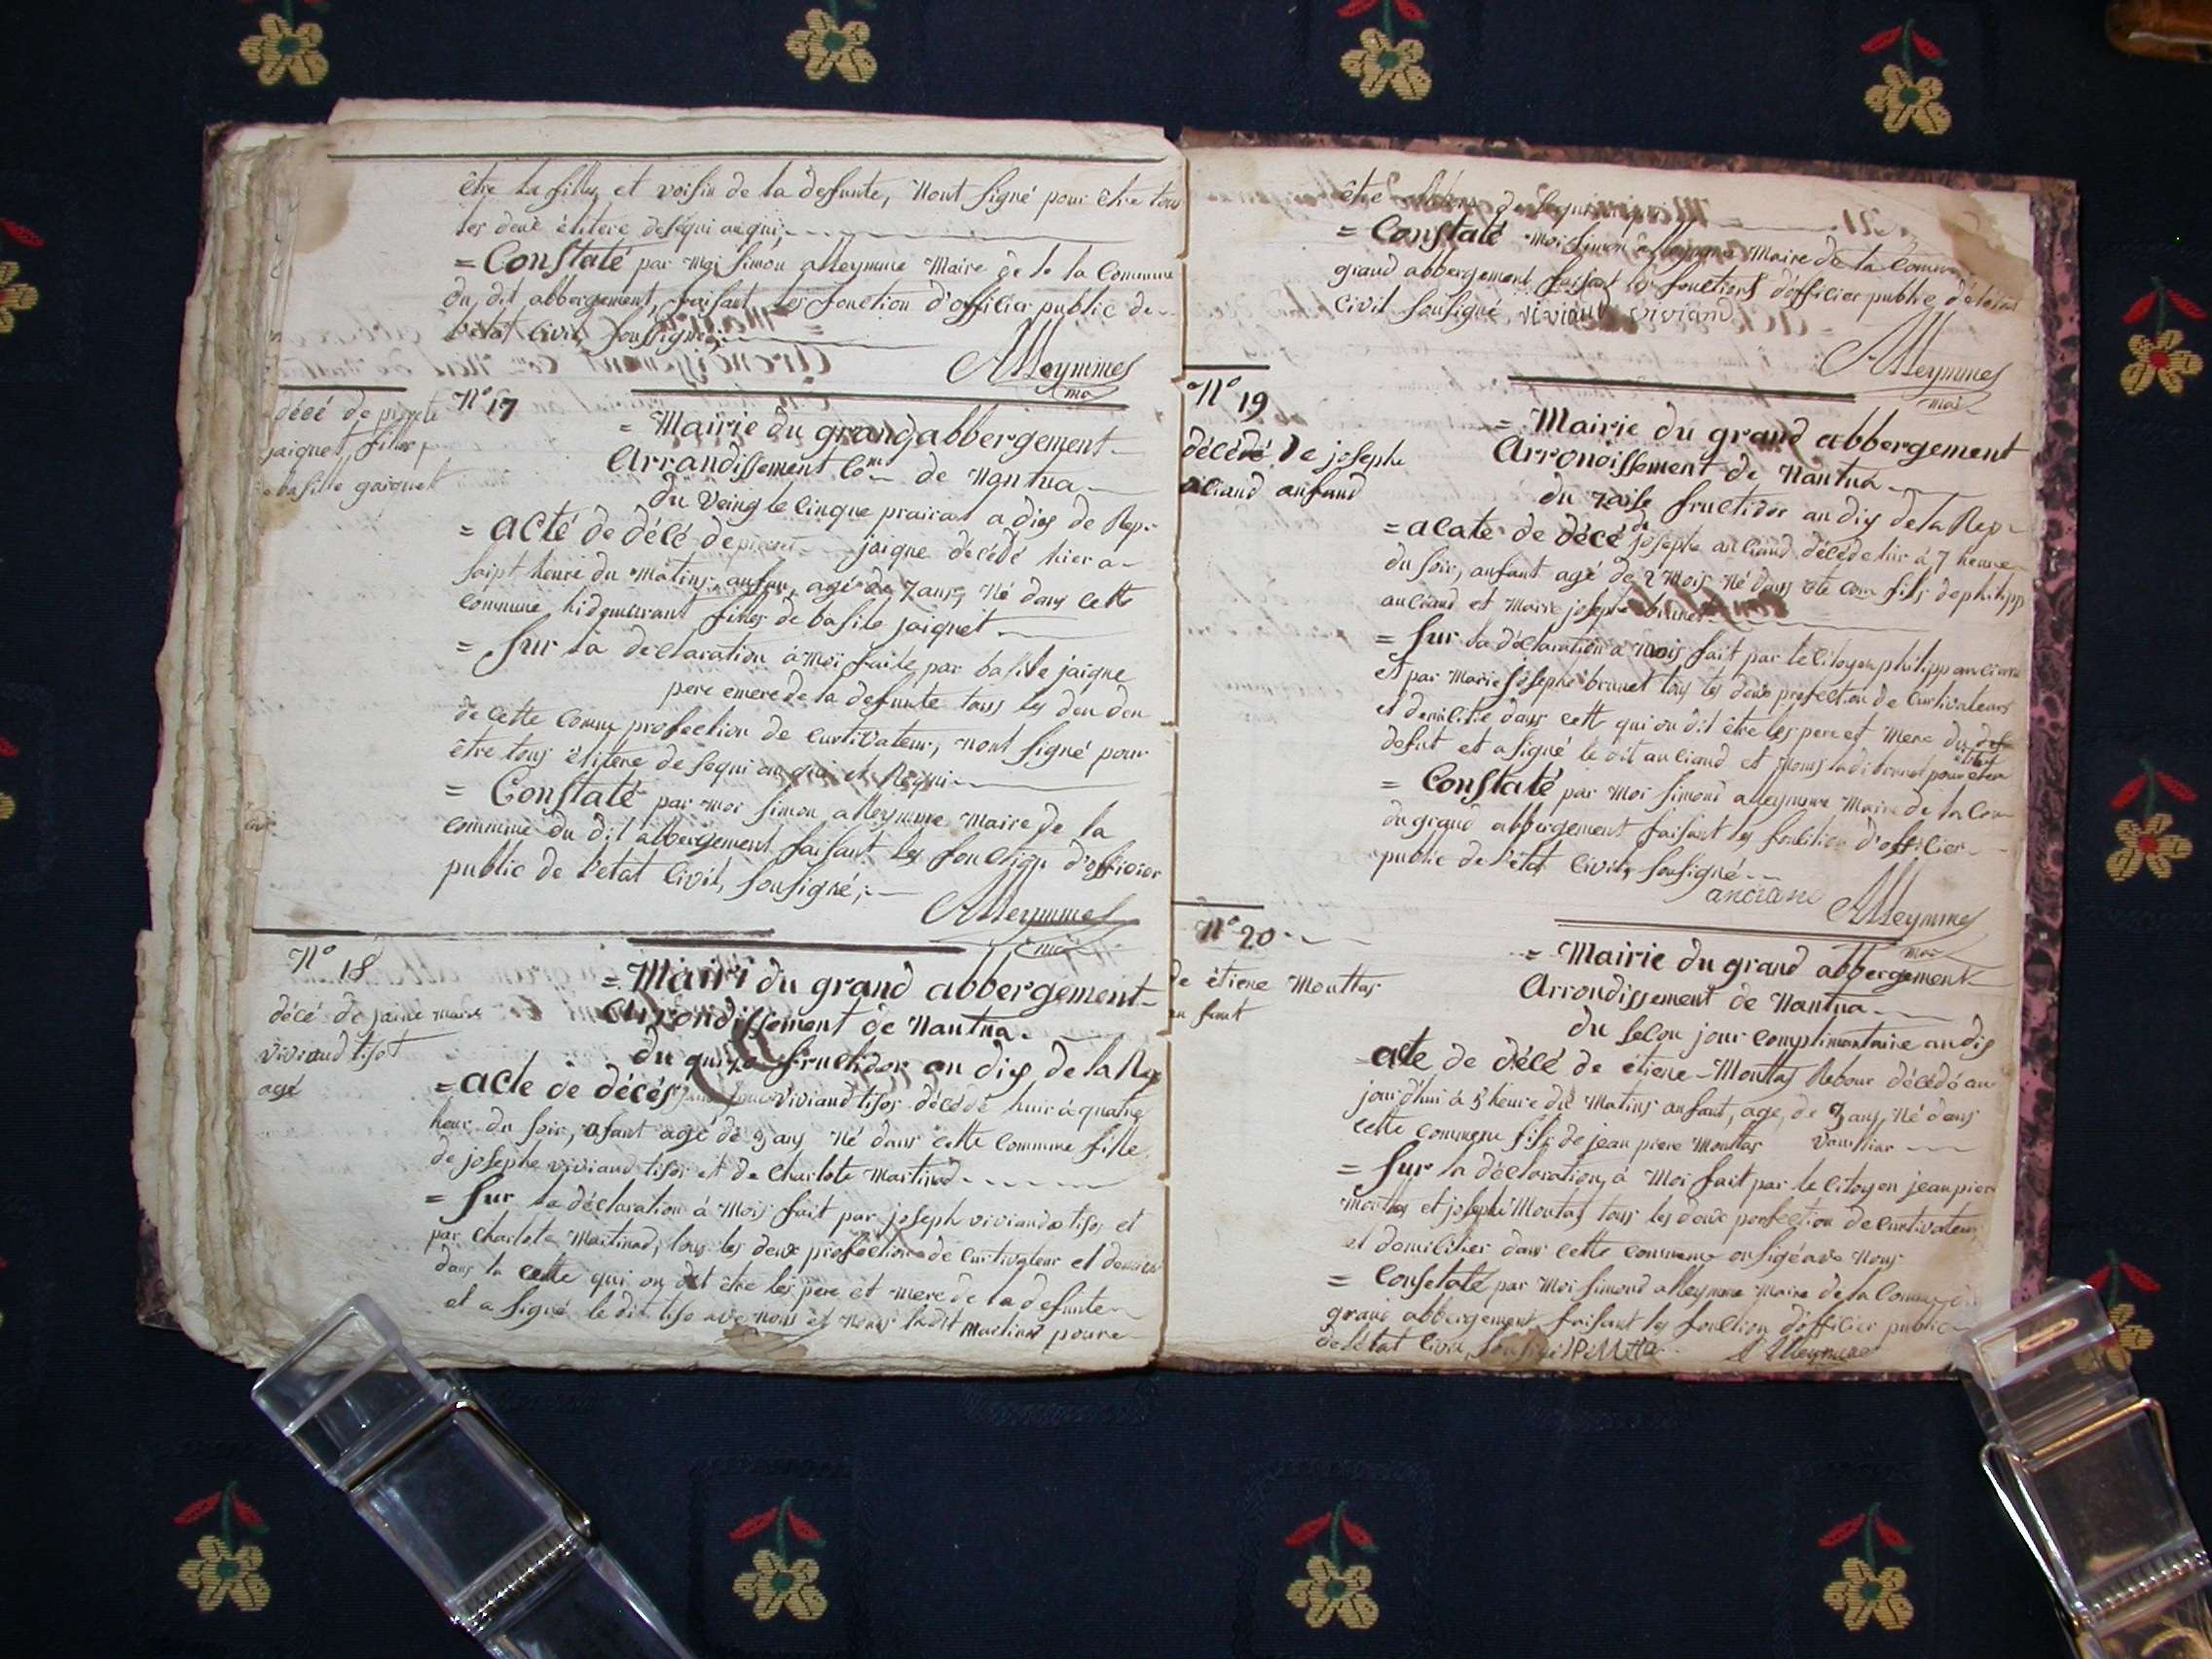 être la fille, et voisin de la defunte, nont signé pour être tous
les deux élitere de se qui an qui
= Constaté par moi simon alleymme Maire de la Commune
du dit abbergement, faisant les fonction d'officier public de
l'état civil, sousigné,
Alleymmes
mai
N° 17
décé de
jaiquet, filles
basille gaiquet
= Mairie du grand abbergement
Arrandissement Com de Nantua
du veing le cinque prairial a dix de Rep.
= acté de décé de jaique décédé hier a
saipt heure du matins, anfan, agé de 7 ans, Né dans cette
commune hidemurant filles de basile jaiquet
= Sur la declaration à moi faite, par basile jaique
pere emere de la defunte tous les deu deu
de cette comme profection de curtivateur, nont signé pour
être tous élitere de se qui an qui et Requi
= Constaté par moi simon alleymme maire de la
commune du dit abbergement faisant les fonction d'officier
public de l'etat civil, sousigné,
Alleymmes
mai
N° 18
décé de marie
viviand tisot
agé
= Mairi du grand abbergement
Arrondissement de Nantua
du quinze fructidor an dix de la Rep
= acte de décés viviand tisos décédé huir à quatre
heur du soir, afant agé de 9 ans Né dans cette commune fille
de josephe viviand tisos et de Charlote Martinod
= Sur la déclaration à Mois fait par joseph viviand tisos et
par Charlote Martinod, tous les deux profection de curtivateur et
dans la cette qui on dit être les pere et mere de la defunte
et a signé le dit tiso ave nous et nons ladit Martinod pour
être
= Constaté moi simon alleymme Maire de la Commune
grand abbergement faisant les fonctions d'officier public de l'etat
Civil sousigné, viviand viviand
Alleymmes
mai
N° 19
décédé de josephe
anfand
= Mairie du grand abbergement
Arronoissement de Nantua
du fructidor an dix de la Rep
= acate de décé de josephe anciand décéde hir à 7 heure
du soir, anfant agé de 2 Mois Né dans cete com fils de philipp
anciand et Marie josephe brunet
= Sur la déclaration a mois fait par le citoyen philipp anciand
et par Marie Josephe brunet tous les deux profection de curtivateurs
et domilitié dans cette qui on dit être les pere et mere du def
defut et a signé le dit anciand et nons ladi brunet pour
= Constaté par moi simond alleymme Maire de la Com
du grand abbergement faisant les fontion d'officier
public de l'état Civil, sousigné
anciane
Alleymmes
mai
N° 20
de étiene Mouttas
an fant
= Mairie du grand abbergement
Arrondissement de Nantua
du secon jour complimantaire an dix
acte de décé de étiene Mouttas Rebour décédé au
jourd'hui à 5 heure du Matins anfant, age, de 3 ans, Né dans
cette commene fils de jean piere Mouttas
= Sur la déclaration, à Moi fait par le citoyen jean pier
mouttas et josephe Moutas tous les deux porfection de curtivateur
et domilitier dans cette commune on sigé ave nous
= Constaté par moi simond alleymme Maire de la Commune
grand abbergement faisant les fonction d'officier public
de l'état civil, sousigé
Alleymme